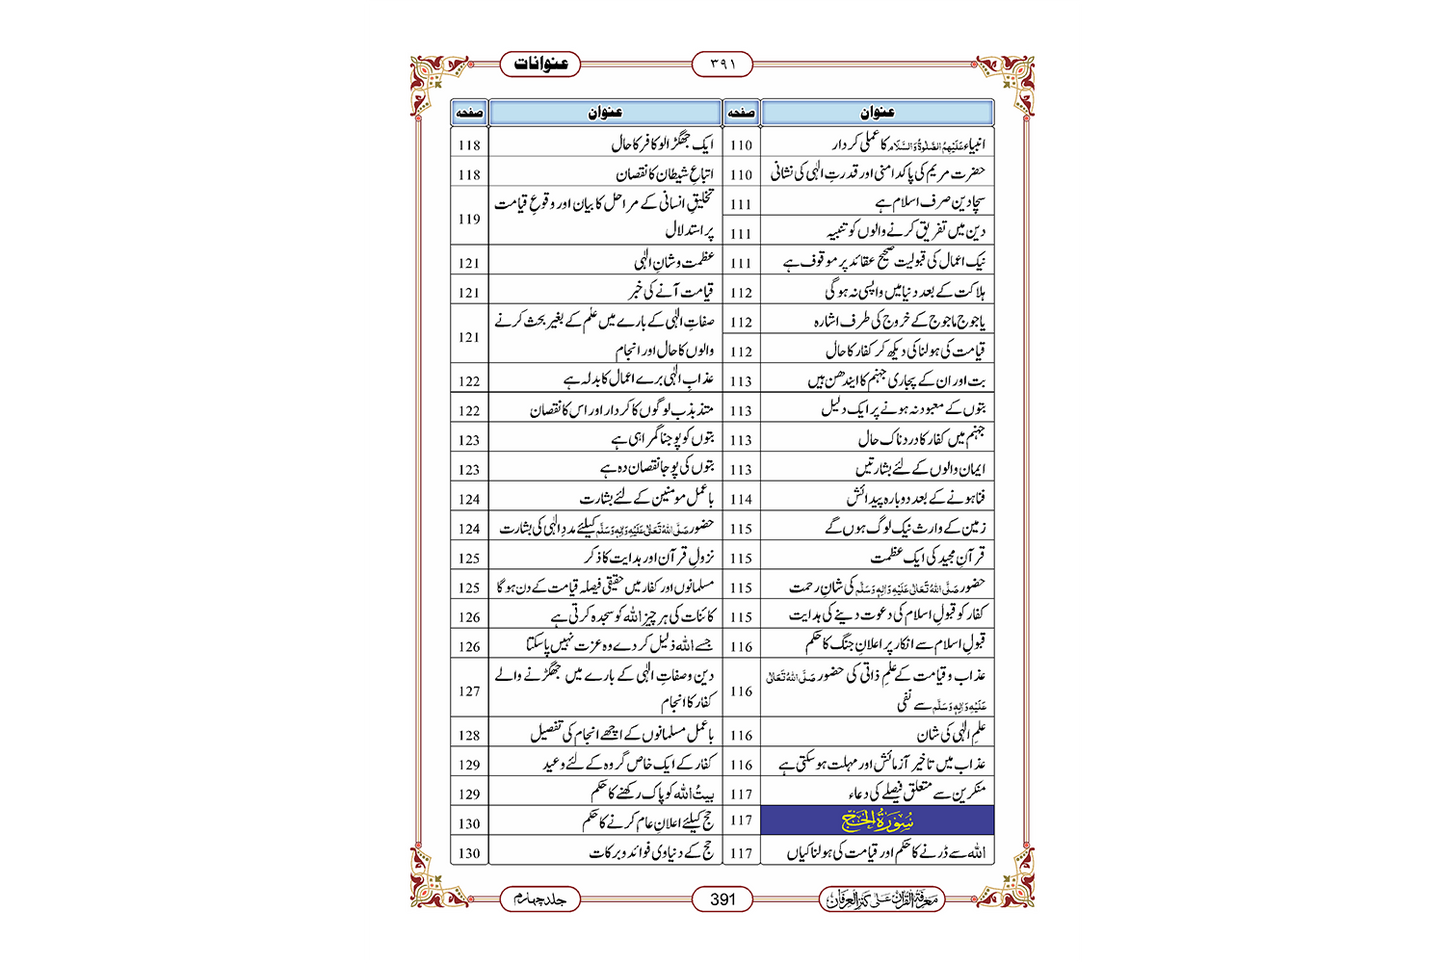 عنوانات
۳۹۱
عنوان صفحہ
انبیاء عَلَیْہِمُ الصَّلٰوۃُ وَالسَّلَام کا عملی کردار 110
حضرت مریم کی پاکدامنی اور قدرتِ الٰہی کی نشانی 110
سچا دین صرف اسلام ہے 111
دین میں تفریق کرنے والوں کو تنبیہ 111
نیک اعمال کی قبولیت صحیح عقائد پر موقوف ہے 111
ہلاکت کے بعد دنیا میں واپسی نہ ہوگی 112
یاجوج ماجوج کے خروج کی طرف اشارہ 112
قیامت کی ہولناکی دیکھ کر کفار کا حال 112
بت اور ان کے پجاری جہنم کا ایندھن ہیں 113
بتوں کے معبود نہ ہونے پر ایک دلیل 113
جہنم میں کفار کا دردناک حال 113
ایمان والوں کے لئے بشارتیں 113
فنا ہونے کے بعد دوبارہ پیدائش 114
زمین کے وارث نیک لوگ ہوں گے 115
قرآنِ مجید کی ایک عظمت 115
حضور صَلَّی اللہُ تَعَالٰی عَلَیْہِ وَاٰلِہٖ وَسَلَّم کی شانِ رحمت 115
کفار کو قبولِ اسلام کی دعوت دینے کی ہدایت 115
قبولِ اسلام سے انکار پر اعلانِ جنگ کا حکم 116
عذاب و قیامت کے علمِ ذاتی کی حضور صَلَّی اللہُ تَعَالٰی
عَلَیْہِ وَاٰلِہٖ وَسَلَّم سے نفی 116
علمِ الٰہی کی شان 116
عذاب میں تاخیر آزمائش اور مہلت ہوسکتی ہے 116
منکرین سے متعلق فیصلے کی دعاء 117
سُوۡرَۃُ الۡحَجّ 117
اللہ سے ڈرنے کا حکم اور قیامت کی ہولناکیاں 117
عنوان صفحہ
ایک جھگڑالو کافر کا حال 118
اتباعِ شیطان کا نقصان 118
تخلیقِ انسانی کے مراحل کا بیان اور وقوعِ قیامت
پر استدلال 119
عظمت و شانِ الٰہی 121
قیامت آنے کی خبر 121
صفاتِ الٰہی کے بارے میں علم کے بغیر بحث کرنے
والوں کا حال اور انجام 121
عذابِ الٰہی برے اعمال کا بدلہ ہے 122
متذبذب لوگوں کا کردار اور اس کا نقصان 122
بتوں کو پوجنا گمراہی ہے 123
بتوں کی پوجا نقصان دہ ہے 123
باعمل مومنین کے لئے بشارت 124
حضور صَلَّی اللہُ تَعَالٰی عَلَیْہِ وَاٰلِہٖ وَسَلَّم کیلئے مددِ الٰہی کی بشارت 124
نزولِ قرآن اور ہدایت کا ذکر 125
مسلمانوں اور کفار میں حقیقی فیصلہ قیامت کے دن ہوگا 125
کائنات کی ہر چیز اللہ کو سجدہ کرتی ہے 126
جسے اللہ ذلیل کر دے وہ عزت نہیں پاسکتا 126
دین و صفاتِ الٰہی کے بارے میں جھگڑنے والے
کفار کا انجام 127
باعمل مسلمانوں کے اچھے انجام کی تفصیل 128
کفار کے ایک خاص گروہ کے لئے وعید 129
بیتُ اللہ کو پاک رکھنے کا حکم 129
حج کیلئے اعلانِ عام کرنے کا حکم 130
حج کے دنیاوی فوائد و برکات 130
معرفۃ القرآن علٰی کنز العرفان
391
جلد چہارم